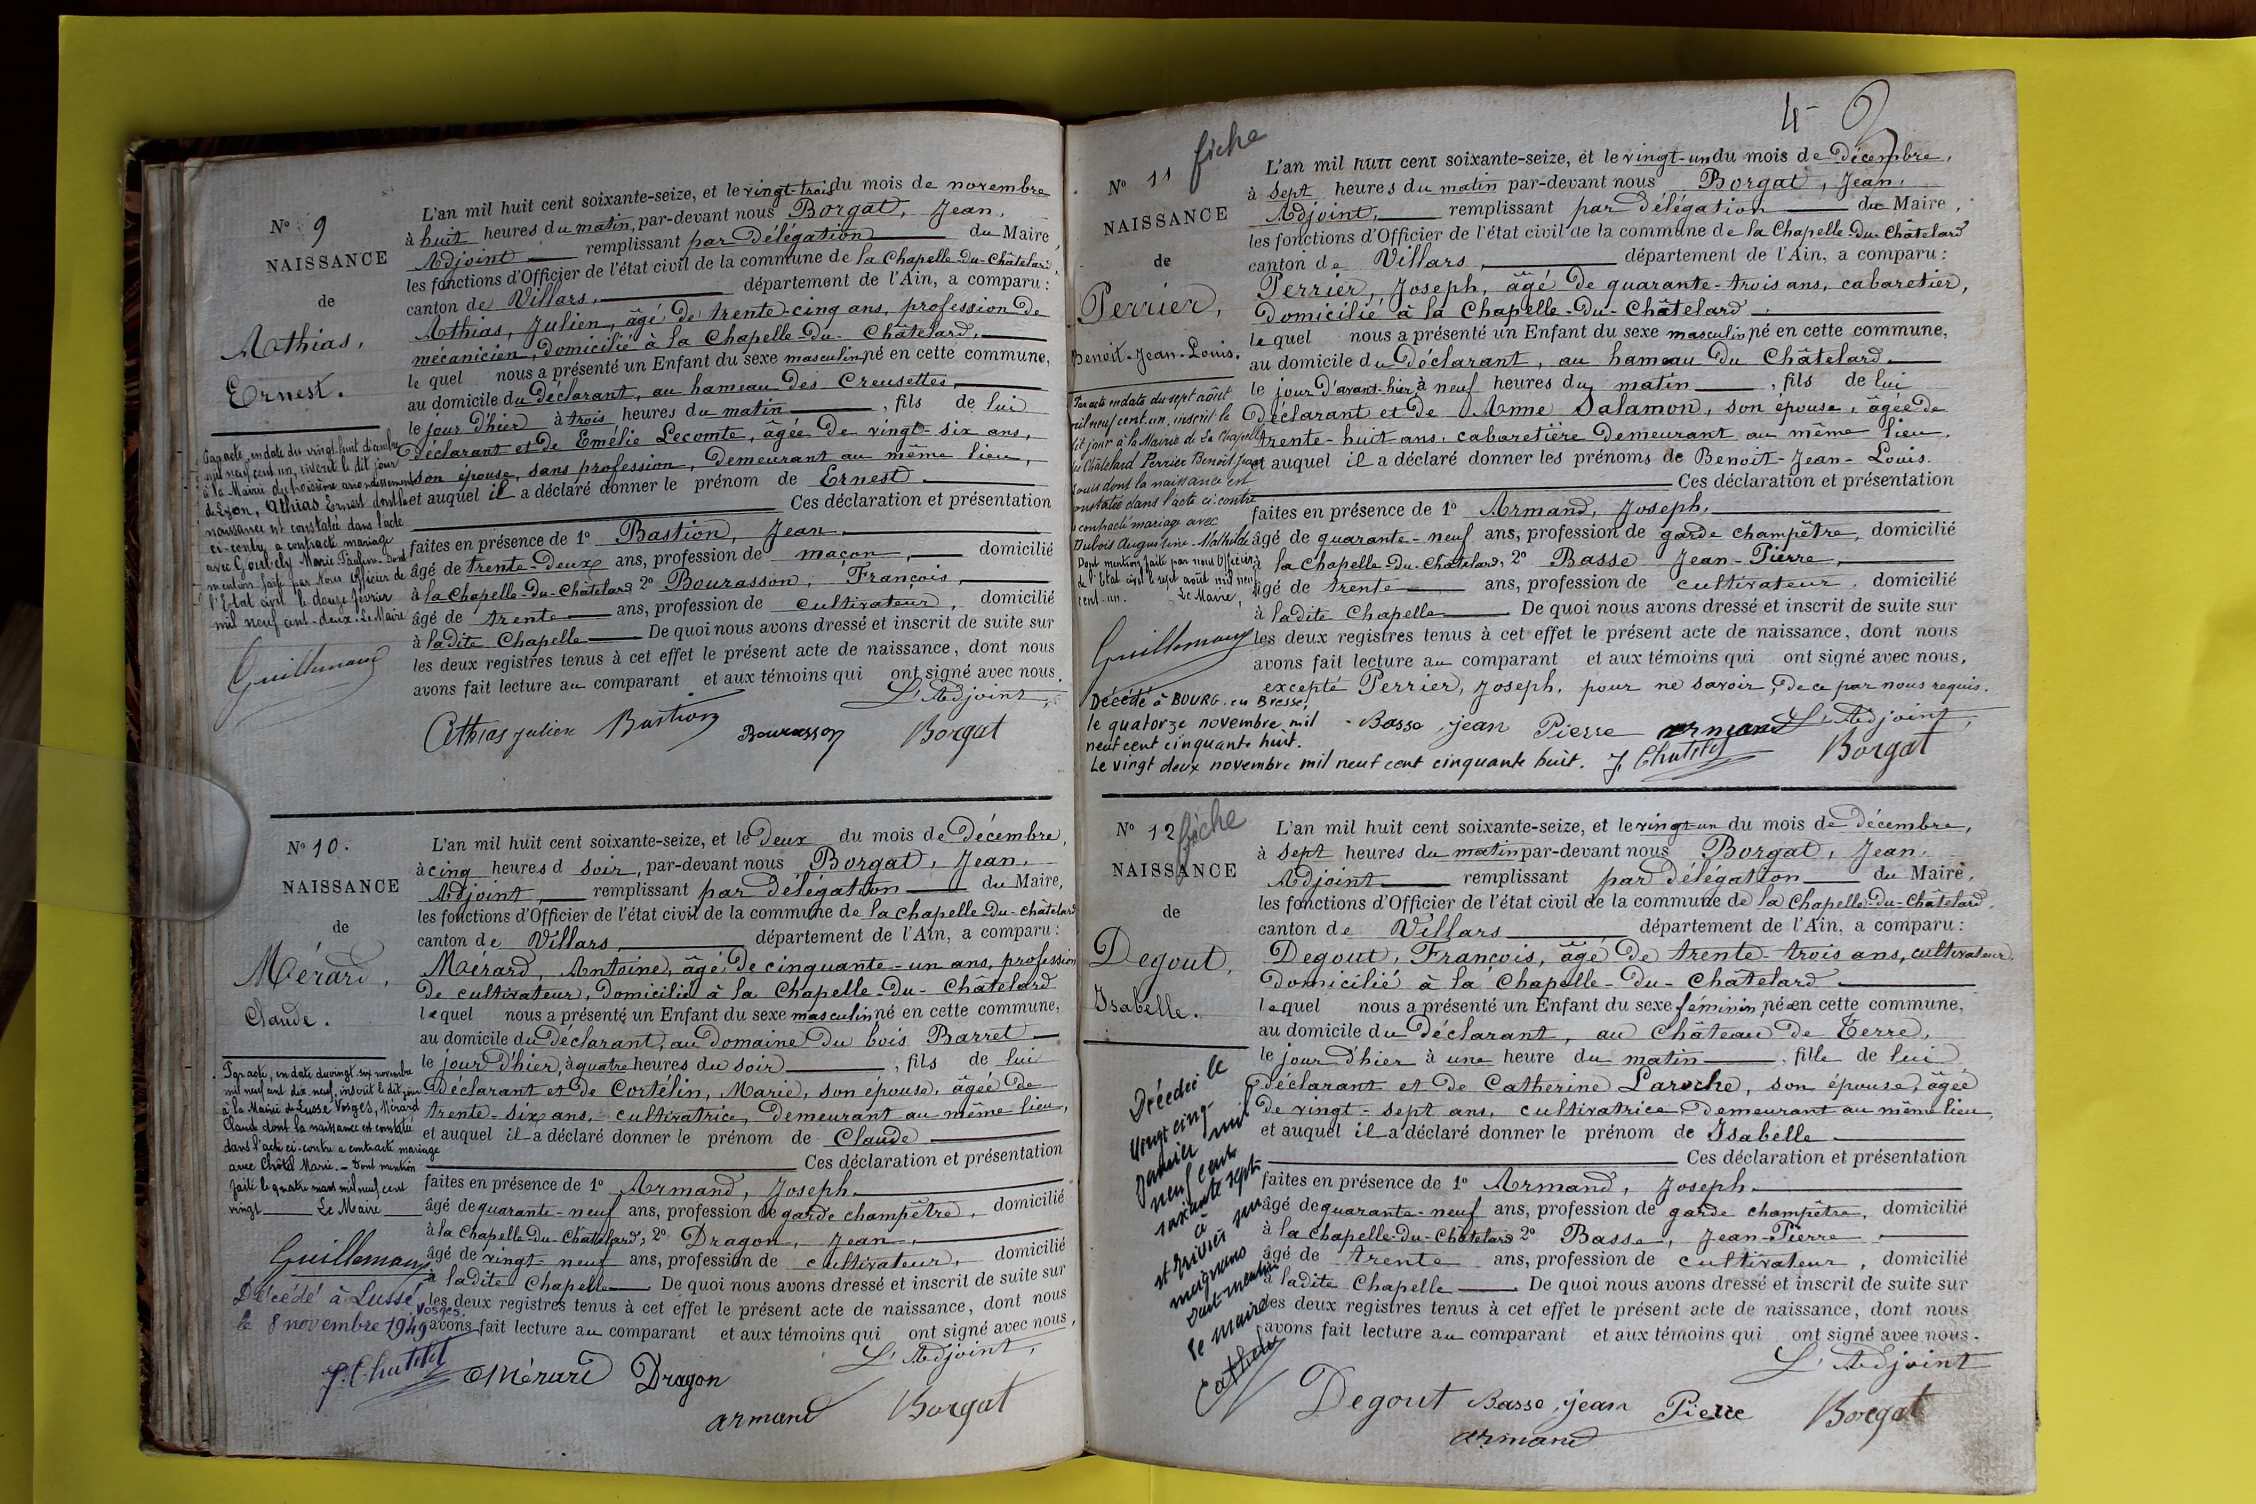 N° 9
NAISSANCE
de
Athias,
Ernest.
Par acte, en date du vingt huit décembre
mil neuf cent un, inscrit le dit jour
à la Mairie du troisième arrondissement
de Lyon, Athias Ernest dont la
naissance est constatée dans l'acte
ci-contre a contracté mariage
avec Marie Pauline. Dont
mention faite par Nous Officier de
l'Etat civil le douze février
mil neuf cent-deux. Le Maire
Guillemaud
L'an mil huit cent soixante-seize, et le vingt-trois du mois de novembre
à huit heures du matin, par-devant nous Borgat, Jean,
Adjoint remplissant par délégation du Maire,
les fonctions d'Officier de l'état civil de la commune de la Chapelle-du-Châtelard,
canton de Villars, département de l'Ain, a comparu :
Athias, Julien, âgé de trente-cinq ans, profession de
mécanicien, domicilié à la Chapelle-du-Châtelard,
le quel nous a présenté un Enfant du sexe masculin, né en cette commune,
au domicile du déclarant, au hameau des Creusettes,
le jour d'hier à trois heures du matin, fils de lui
déclarant et de Emélie Lecomte, âgée de vingt-six ans,
son épouse, sans profession, demeurant au même lieu,
et auquel il a déclaré donner le prénom de Ernest
Ces déclaration et présentation
faites en présence de 1° Bastion, Jean,
âgé de trente-deux ans, profession de maçon, domicilié
à la Chapelle-du-Châtelard 2° Bourasson, François,
âgé de trente ans, profession de cultivateur, domicilié
à ladite Chapelle De quoi nous avons dressé et inscrit de suite sur
les deux registres tenus à cet effet le présent acte de naissance, dont nous
avons fait lecture au comparant et aux témoins qui ont signé avec nous.
L'Adjoint,
Athias Julien Bastion Bourasson Borgat
N° 10.
NAISSANCE
de
Mérard,
Claude.
Par acte, en date du vingt-six novembre
mil neuf cent dix neuf, inscrit le dit jour
à la Mairie de Lusse Vosges, Mérard
Claude dont la naissance est constatée
dans l'acte ci-contre a contracté mariage
avec Chôtel Marie. — Dont mention
faite le quatre mars mil neuf cent
vingt Le Maire
Guillemaud
Décédé à Lusse Vosges,
le 8 novembre 1949
J. Chatelet
L'an mil huit cent soixante-seize, et le deux du mois de Décembre,
à cinq heures d soir, par-devant nous Borgat, Jean,
Adjoint, remplissant par délégation du Maire,
les fonctions d'Officier de l'état civil de la commune de la Chapelle-du-Châtelard
canton de Villars, département de l'Ain, a comparu :
Mérard, Antoine, âgé de cinquante-un ans, profession
de cultivateur, domicilié à la Chapelle-du-Châtelard
lequel nous a présenté un Enfant du sexe masculin né en cette commune,
au domicile du déclarant, au domaine du bois Barret
le jour d'hier, à quatre heures du soir, fils de lui
déclarant et de Cortélin, Marie, son épouse, âgée de
trente-six ans, cultivatrice, demeurant au même lieu,
et auquel il a déclaré donner le prénom de Claude
Ces déclaration et présentation
faites en présence de 1° Armand, Joseph.
âgé de quarante-neuf ans, profession de garde champêtre, domicilié
à la Chapelle-du-Châtelard, 2° Dragon, Jean,
âgé de vingt-neuf ans, profession de cultivateur, domicilié
à ladite Chapelle De quoi nous avons dressé et inscrit de suite sur
les deux registres tenus à cet effet le présent acte de naissance, dont nous
avons fait lecture au comparant et aux témoins qui ont signé avec nous,
L'Adjoint,
Mérard Dragon
armand Borgat
4
N° 11 fiche
NAISSANCE
de
Perrier,
Benoit-Jean-Louis.
Par acte en date du sept août
mil neuf cent un, inscrit le
dit jour à la Mairie de La Chapelle
du Châtelard Perrier Benoit Jean
Louis dont la naissance est
constatée dans l'acte ci-contre
a contracté mariage avec
Dubois Augustine-Mathilde
Dont mention faite par nous Officier
de l'Etat civil le sept août mil neuf
cent-un. Le Maire,
Guillemaud
Décédé à BOURG-en Bresse,
le quatorze novembre mil
neuf cent cinquante huit.
Le vingt deux novembre mil neuf cent cinquante huit. J. Chatelet
L'an mil huit cent soixante-seize, et le vingt-un du mois de Décembre,
à sept heures du matin par-devant nous Borgat, Jean,
Adjoint, remplissant par délégation du Maire,
les fonctions d'Officier de l'état civil de la commune de la Chapelle-du-Châtelard
canton de Villars, département de l'Ain, a comparu :
Perrier, Joseph, âgé de quarante-trois ans, cabaretier,
domicilié à la Chapelle-du-Châtelard,
le quel nous a présenté un Enfant du sexe masculin, né en cette commune,
au domicile du déclarant, au hameau du Châtelard
le jour d'avant-hier, à neuf heures du matin, fils de lui
déclarant et de Anne Salamon, son épouse, âgée de
trente-huit ans, cabaretière demeurant au même lieu.
et auquel il a déclaré donner les prénoms de Benoit-Jean-Louis.
Ces déclaration et présentation
faites en présence de 1° Armand, Joseph,
âgé de quarante-neuf ans, profession de garde champêtre, domicilié
à la Chapelle-du-Châtelard, 2° Basse Jean-Pierre,
âgé de trente ans, profession de cultivateur, domicilié
à ladite Chapelle De quoi nous avons dressé et inscrit de suite sur
les deux registres tenus à cet effet le présent acte de naissance, dont nous
avons fait lecture au comparant et aux témoins qui ont signé avec nous,
excepté Perrier, Joseph, pour ne savoir, de ce par nous requis.
Basse jean Pierre armand L'Adjoint,
Borgat
N° 12 fiche
NAISSANCE
de
Degout,
Isabelle.
Décédée le
vingt cinq
Janvier mil
neuf cent
soixante sept
à
st Trivier sur
moignans
dont mention
le maire
L'an mil huit cent soixante-seize, et le vingt-un du mois de décembre,
à sept heures du matin par-devant nous Borgat, Jean,
Adjoint remplissant par délégation du Maire,
les fonctions d'Officier de l'état civil de la commune de la Chapelle-du-Châtelard,
canton de Villars département de l'Ain, a comparu :
Degout, François, âgé de trente-trois ans, cultivateur,
domicilié à la Chapelle-du-Châtelard
lequel nous a présenté un Enfant du sexe féminin, née en cette commune,
au domicile du déclarant, au Château de Terre,
le jour d'hier à une heure du matin, fille de lui
déclarant et de Catherine Laroche, son épouse, âgée
de vingt-sept ans, cultivatrice demeurant au même lieu,
et auquel il a déclaré donner le prénom de Isabelle
Ces déclaration et présentation
faites en présence de 1° Armand, Joseph
âgé de quarante-neuf ans, profession de garde champêtre, domicilié
à la Chapelle-du-Châtelard 2° Basse, Jean-Pierre
âgé de trente ans, profession de cultivateur, domicilié
à ladite Chapelle De quoi nous avons dressé et inscrit de suite sur
les deux registres tenus à cet effet le présent acte de naissance, dont nous
avons fait lecture au comparant et aux témoins qui ont signé avec nous.
L'Adjoint
Degout Basse jean Pierre Borgat
armand